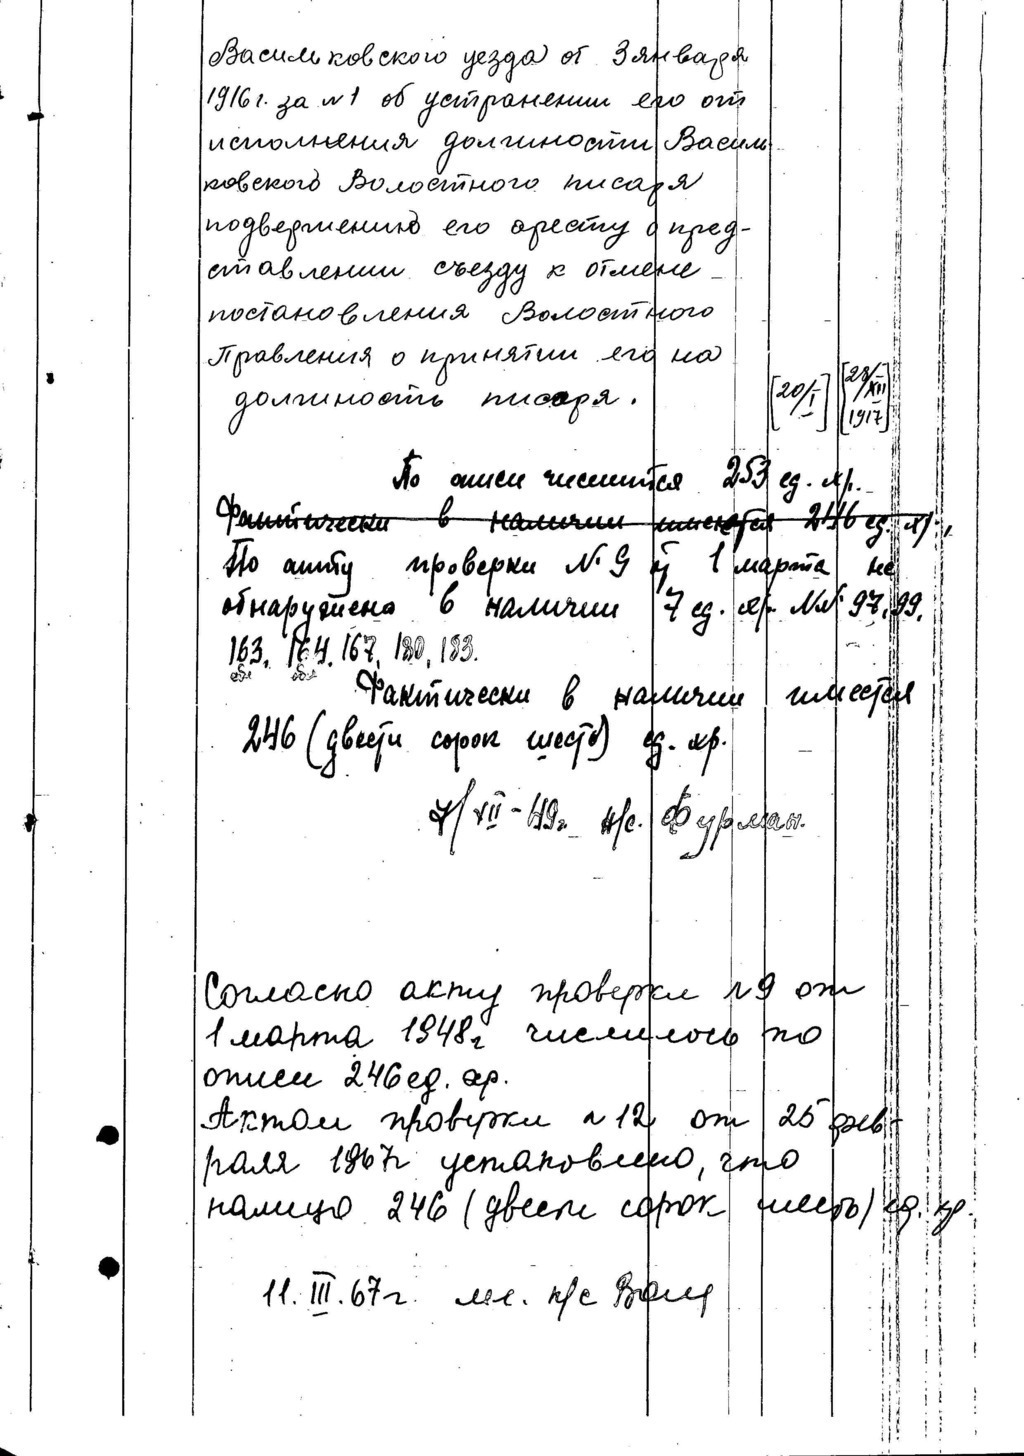 Васильковского уезда от 3 января
1916 г. за №1 об устранении его от
исполнения должности Василь-
ковского Волостного писаря
подвержению его аресту о пред-
ставлении съезду к отмене
постановления Волостного
Правления о принятии его на
должность писаря.
[20/I] [28/XII 1917]
По описи числится 253 ед. хр.
Фактически в наличии имеются 246 ед. хр.,
По акту проверки №9 от 1 марта не
обнаружено в наличии 7 ед. хр. №№ 97, 99,
163, 164, 167, 180, 183.
Фактически в наличии имеется
246 (двести сорок шесть) ед. хр.
XII-49г. н/с. Фурман.
Согласно акту проверки №9 от
1 марта 1948г числилось по
описи 246 ед. хр.
Актом проверки №12 от 25 фев-
раля 1967г установлено, что
налицо 246 (двести сорок шесть) ед. хр.
11.III.67г. мл. н/с